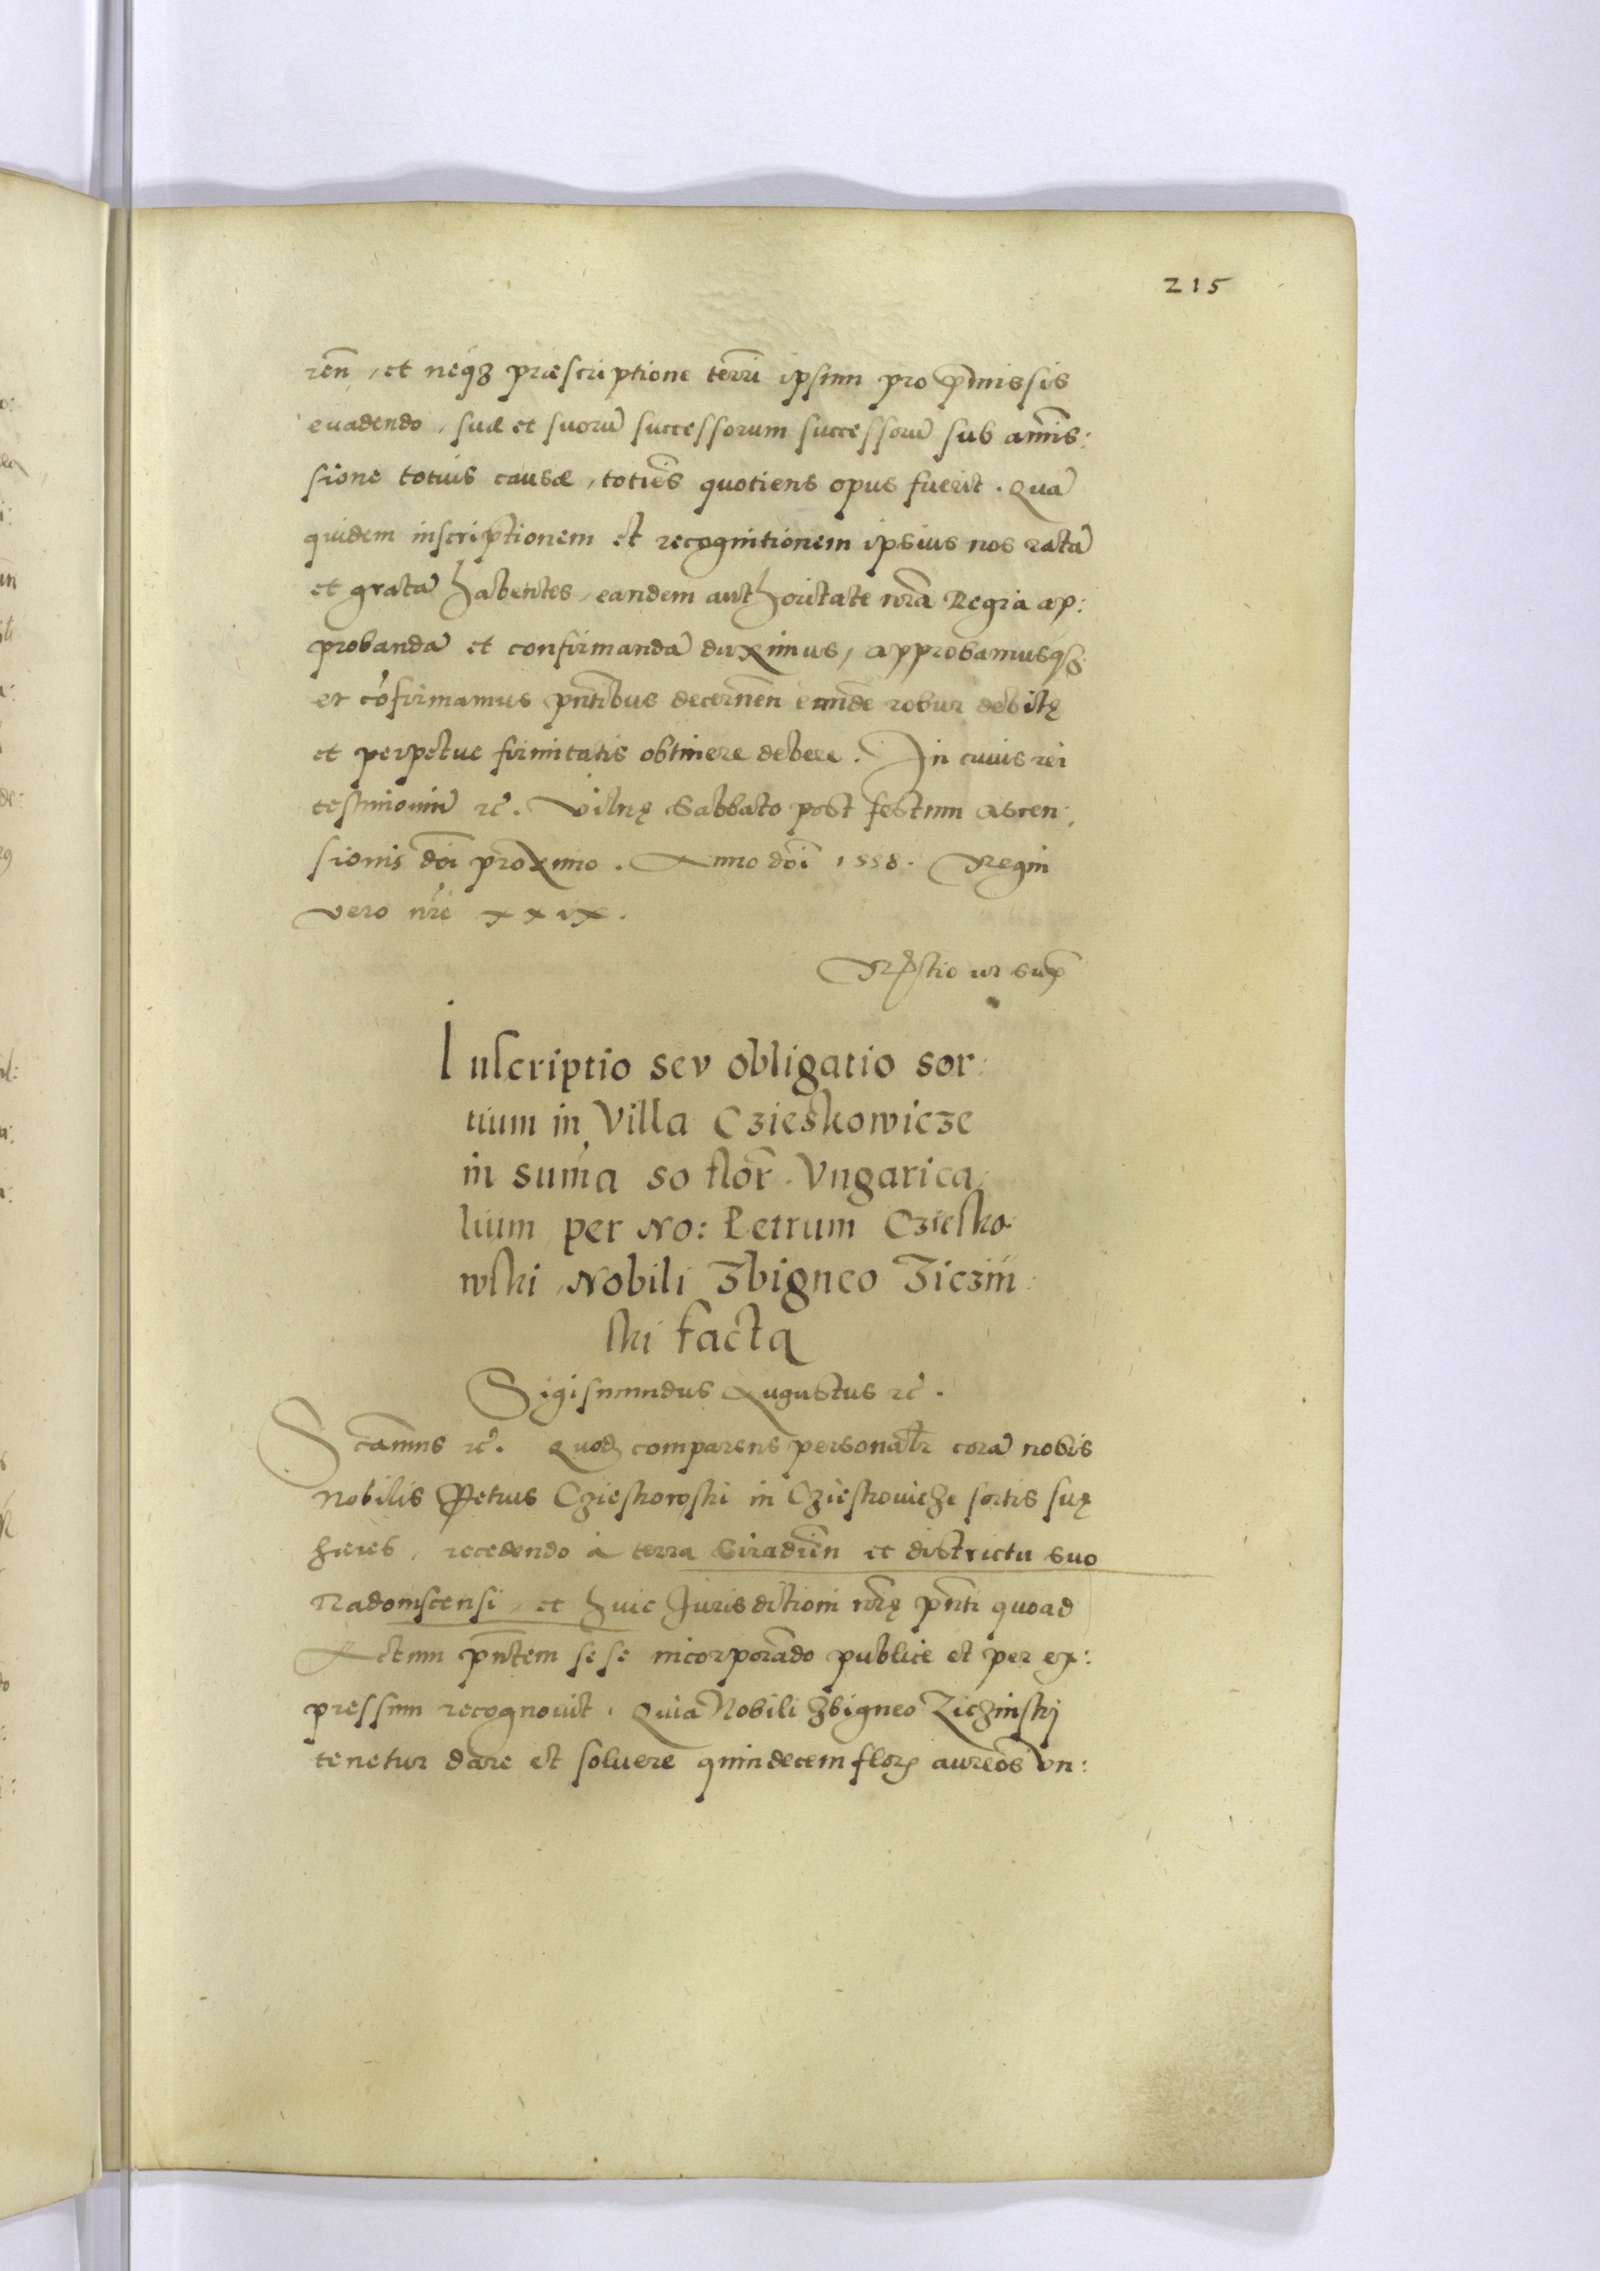 215
ren̄, et neq3 præscriptione terri ipsum pro p̄missis
euadendo, suæ et suorū successorum successorū sub amis:
sione totius causæ, totiēs quotiens opus fuerit. Quā
quidem inscriptionem et recognitionem ipsius nos ratā
et gratā habentes, eandem authoritate nr̄a Regia ap:
probandā et confirmandā duximus, approbamusq3
et cōfirmamus pn̄tibus decernen̄ eandē robur debitę
et perpetue firmitatis obtinere debere. In cuius rei
testimoniū rc̄. Vilnę Sabbato post festum Ascen:
sionis dn̄i proximo. Anno dn̄i 1558. Regni
vero nr̄i xxix.
ut sup̄
Inscriptio sev obligatio sor:
tium in Villa Czieskowicze
in sum̄a 50 flor̄. Vngarica:
lium per No: Petrum Czesko:
wski Nobili Zbigneo Ziczin:
ski facta
Sigismundus Augustus rc̄.
S canus rc̄. Quod comparens personalr̄ corā nobis
Nobilis Petrus Czieskowski in Czieskovicze sortis suę
hæres, recedendo à terra Siradien̄ et districtu suo
Radomscensi, et huic Jurisdictioni nr̄ę pn̄ti quoad
Actum pn̄tem sese incorporādo publice et per ex:
pressum recognovit. Quia Nobili Zbigneo Ziczinskj
tenetur dare et soluere quindecem flor̄ aureos vn: